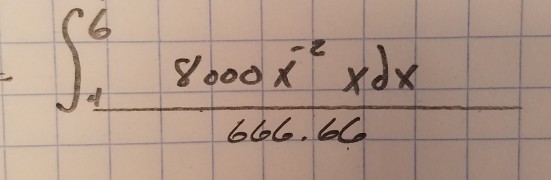 ∫₄⁶ 8000x⁻² x dx
666.66